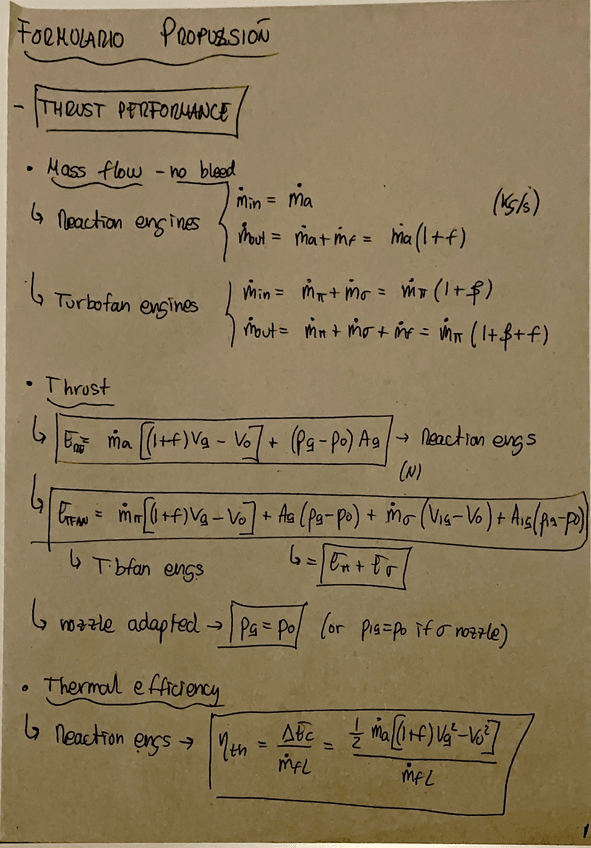 FORMULARIO PROPULSIÓN
- THRUST PERFORMANCE
• Mass flow - no bleed
↳ Reaction engines { ṁin = ṁa (kg/s)
ṁout = ṁa + ṁf = ṁa (1+f)
↳ Turbofan engines { ṁin = ṁπ + ṁσ = ṁπ (1+β)
ṁout = ṁπ + ṁσ + ṁf = ṁπ (1+β+f)
• Thrust
ṁa [(1+f)V9 - V0] + (p9 - p0) A9 → Reaction engs
(N)
↳ ETFAN = ṁπ [(1+f)V9 - V0] + A9 (p9 - p0) + ṁσ (V19 - V0) + A19 (p19 - p0)
↳ Tbfan engs ↳ = Eπ + Eσ
↳ nozzle adapted → p9 = p0 (or p19 = p0 if σ nozzle)
• Thermal efficiency
↳ Reaction engs → ηth = ΔEc / ṁfL = ½ ṁa [(1+f) V9² - V0²] / ṁfL
1